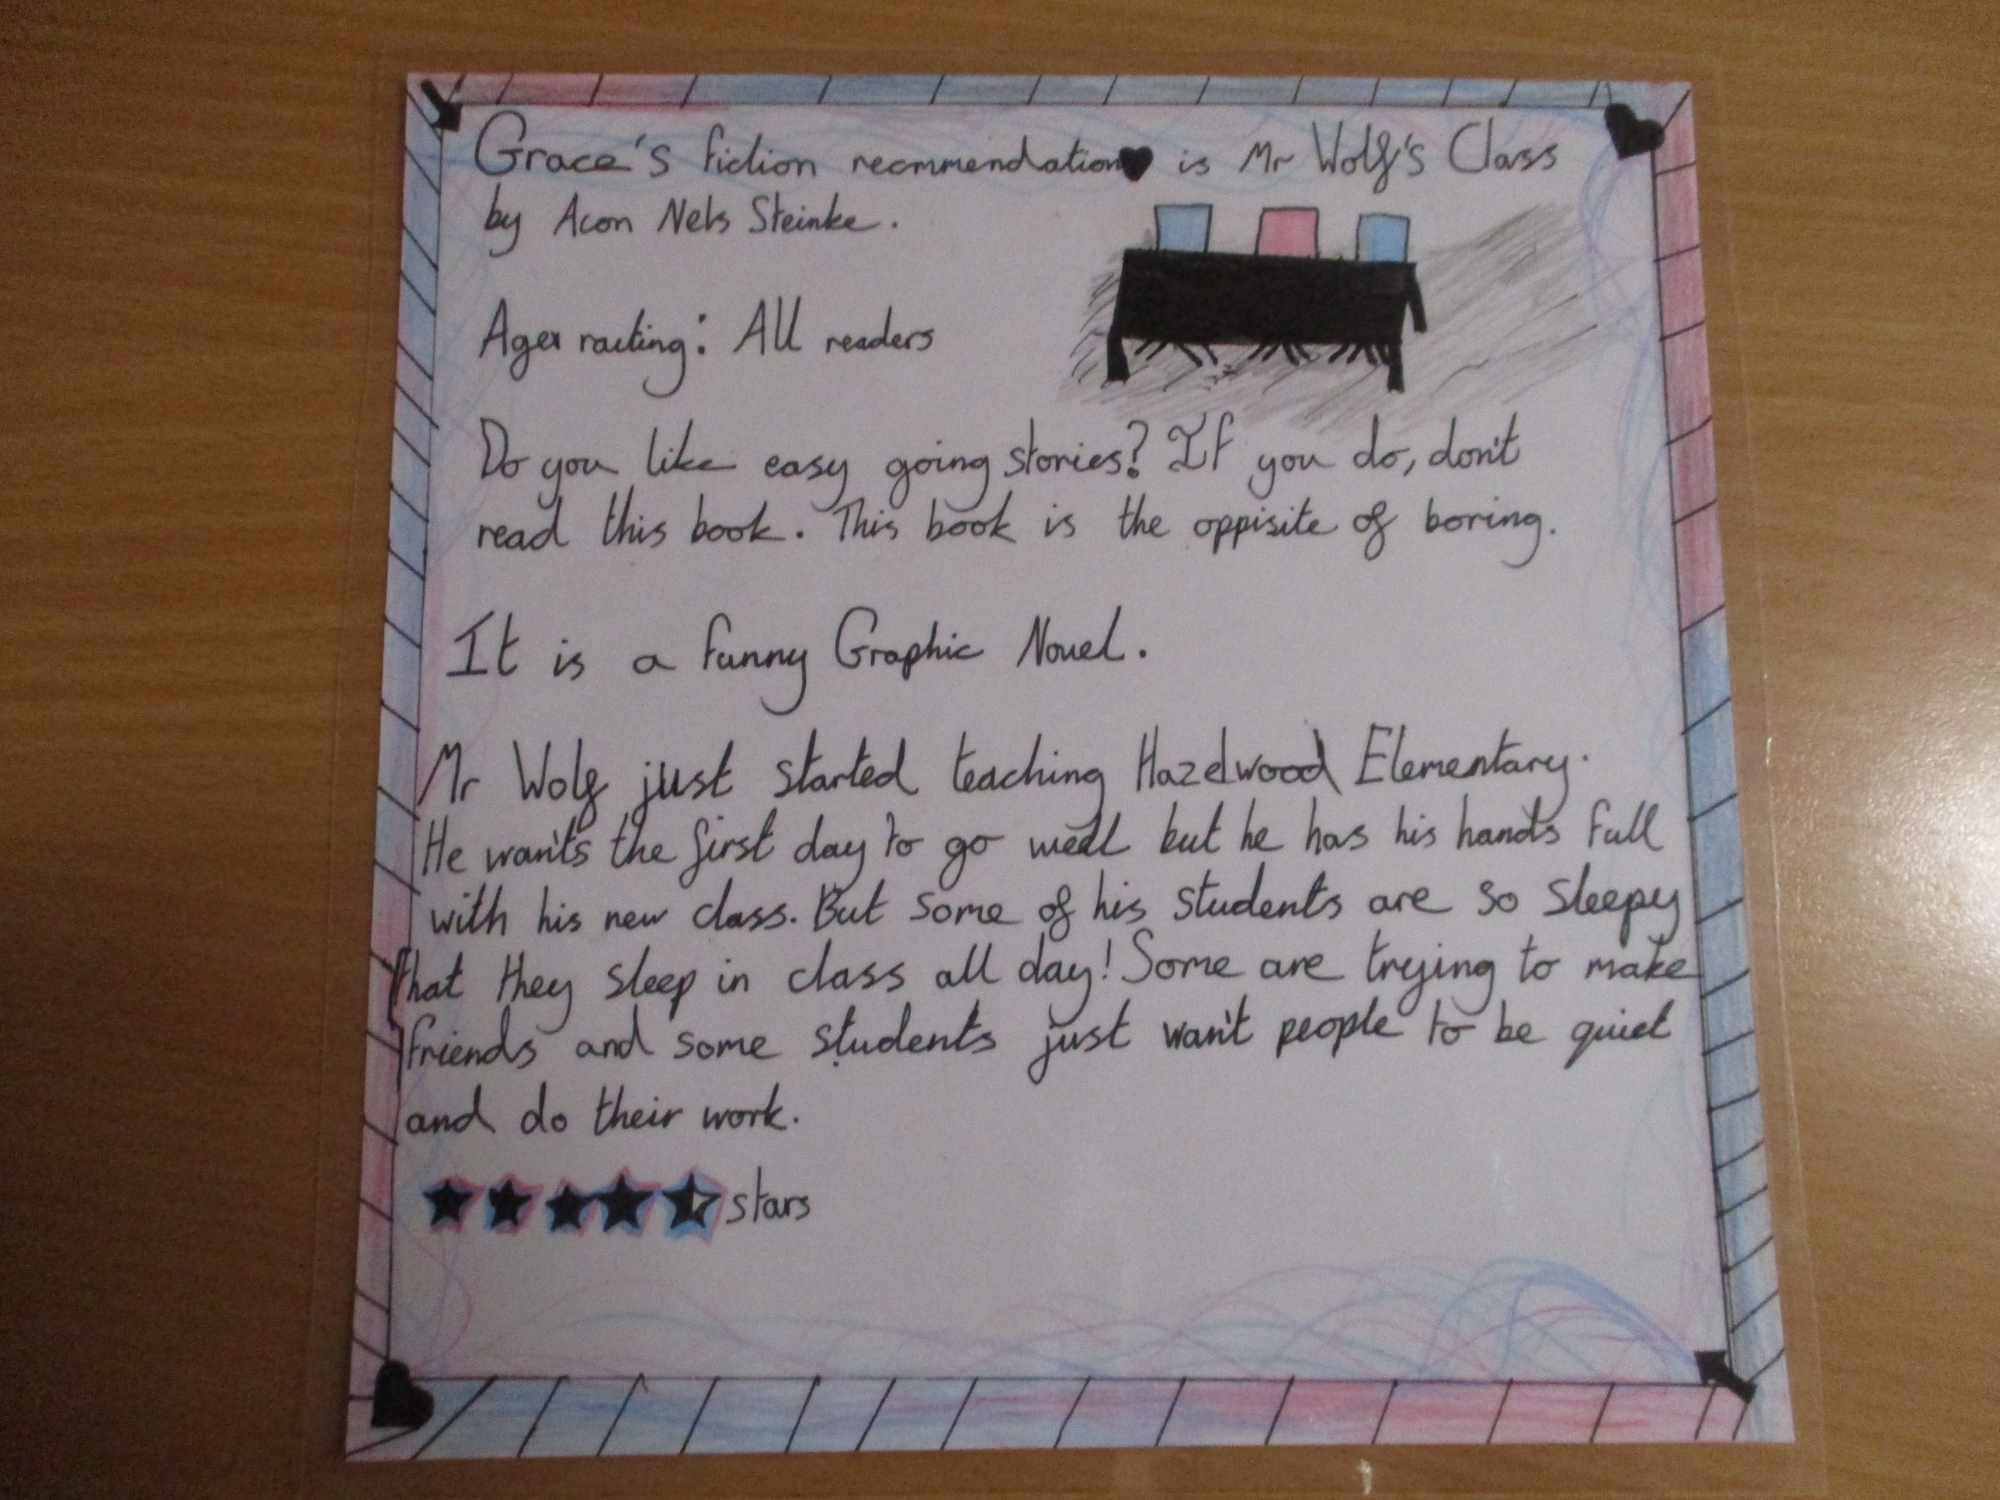 Grace's fiction recmmendation♥ is Mr Wolf's Class
by Acon Nels Steinke.
Ages raiting: All readers
Do you like easy going stories? If you do, don't
read this book. This book is the oppisite of boring.
It is a funny Graphic Novel.
Mr Wolf just started teaching Hazelwood Elementary.
He wants the first day to go well but he has his hands full
with his new class. But some of his students are so sleepy
that they sleep in class all day! Some are trying to make
friends and some students just want people to be quiet
and do their work.
stars